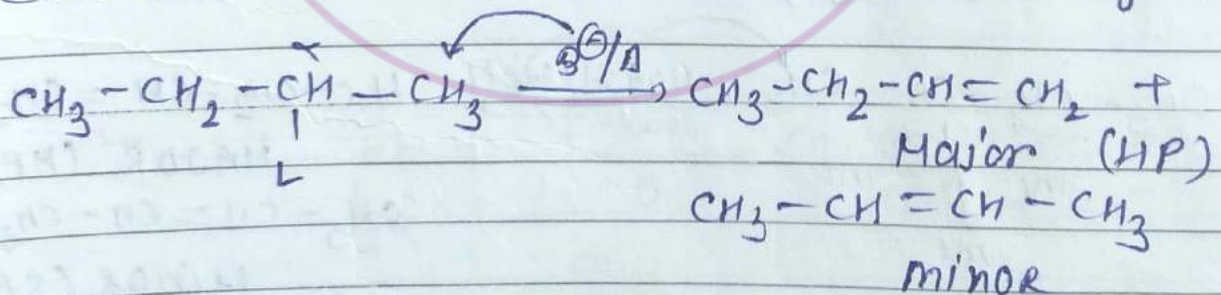 α
CH₃ - CH₂ - CH - CH₃ B⊖/Δ → CH₃-CH₂-CH=CH₂ +
L Major (HP)
CH₃ - CH = CH - CH₃
minor